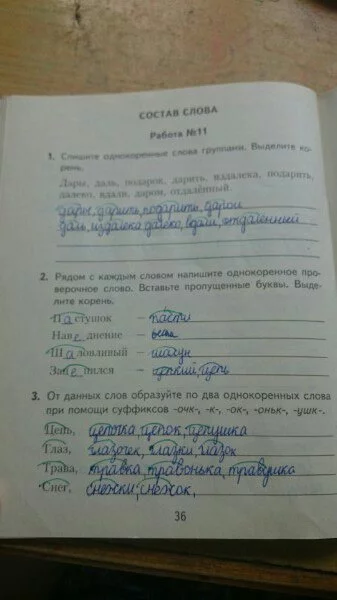 СОСТАВ СЛОВА
Работа №11
1. Спишите однокоренные слова группами. Выделите ко-
рень.
Дары, даль, подарок, дарить, издалека, подарить,
далеко, вдали, даром, отдалённый.
дары, дарить, подарить, даром
даль, издалека далеко, вдали, отдаленный
2. Рядом с каждым словом напишите однокоренное про-
верочное слово. Вставьте пропущенные буквы. Выде-
лите корень.
Пастушок – пасти
Наведнение –
Шаловливый – шалун
Зацепился – цепкий, цепь
3. От данных слов образуйте по два однокоренных слова
при помощи суффиксов -очк-, -к-, -ок-, -оньк-, -ушк-.
Цепь, цепочка, цепок, цепушка
Глаз, глазочек, глазки, глазок
Трава, травка, травонька, травушка
Снег, снежки, снежок,
36